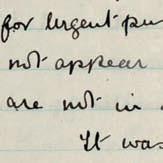 for urgent pu
not appear
are not in
It was